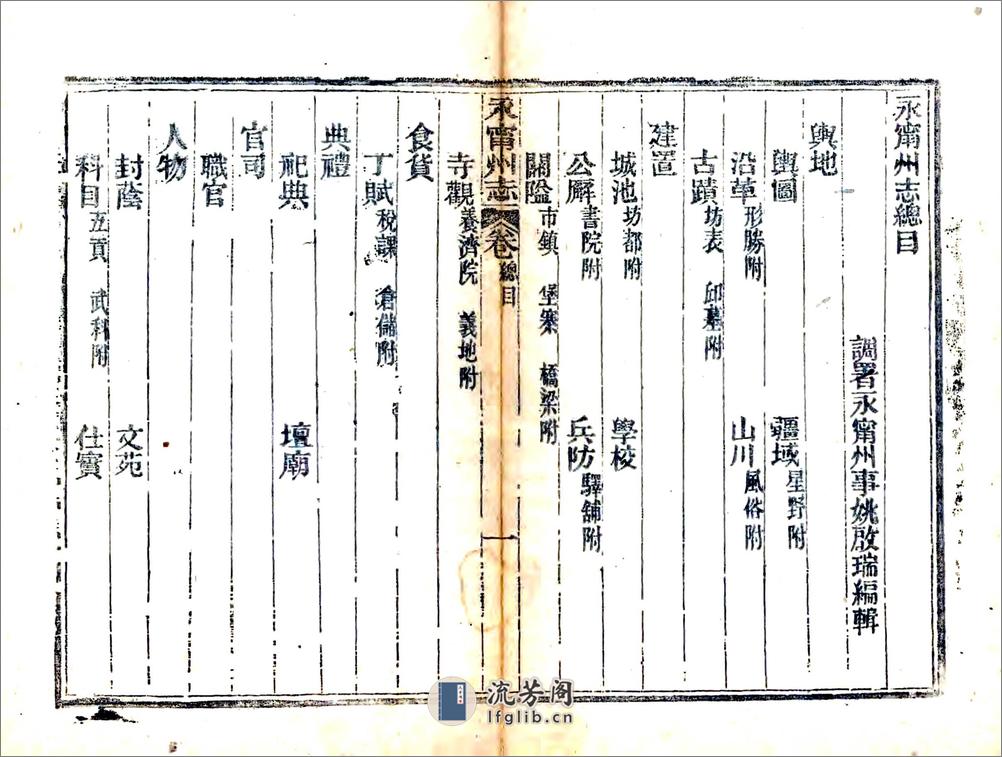 永甯州志總目
調署永甯州事姚啟瑞編輯
輿地
輿圖 疆域星野附
沿革形勝附 山川風俗附
古蹟坊表 邱墓附
建置
城池坊都附 學校
公廨書院附 兵防驛舖附
關隘市鎮 堡寨 橋梁附
永甯州志 卷總目 一
寺觀養濟院 義地附
食貨
丁賦稅課 倉儲附
典禮
祀典 壇廟
官司
職官
人物
封蔭 文苑
科目五貢 武科附 仕宦
流芳阁
lfglib.cn